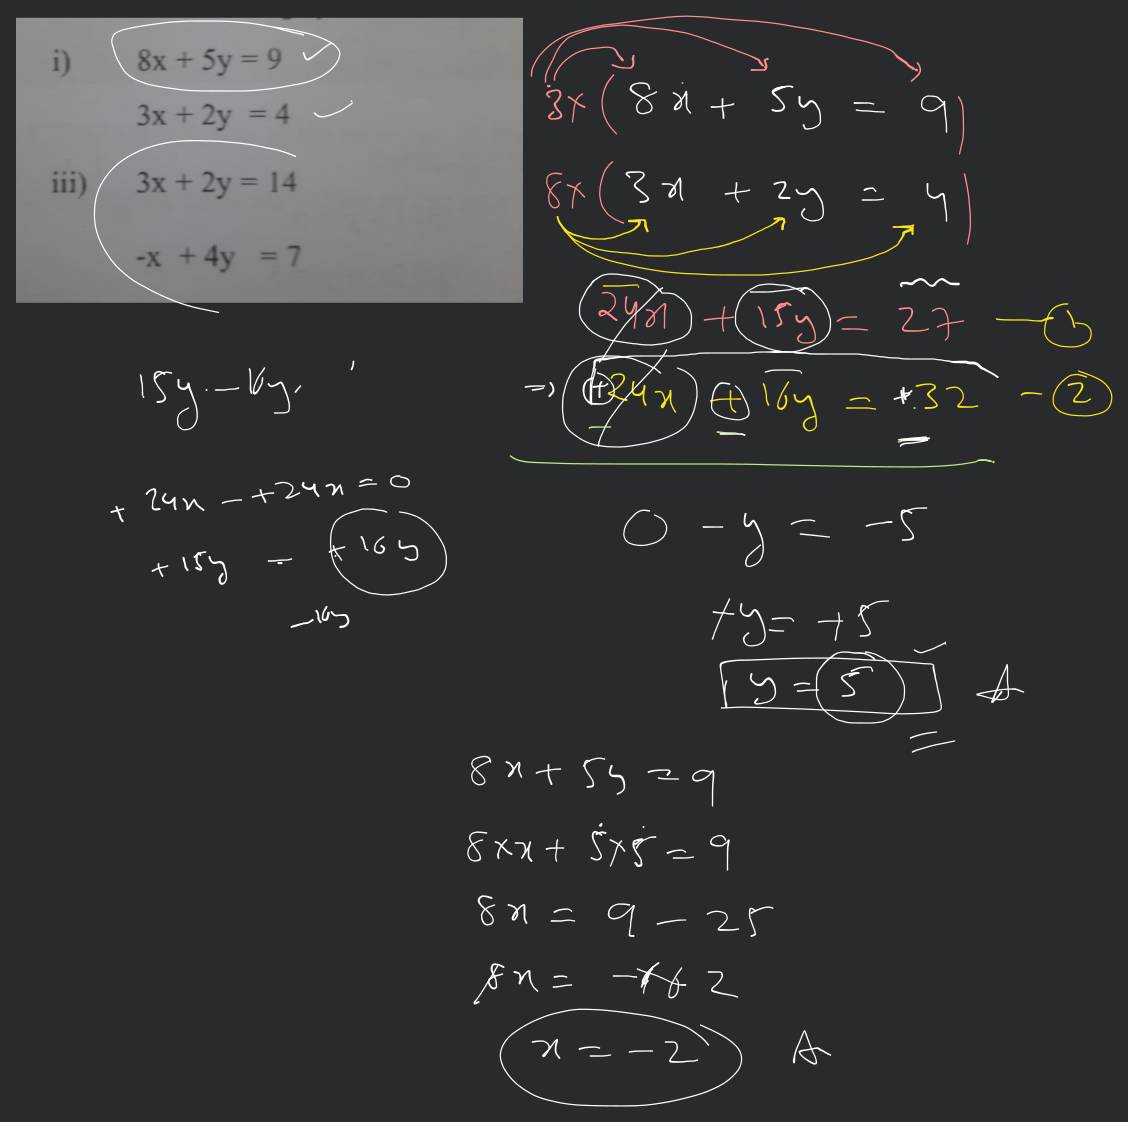 i) 8x + 5y = 9
3x + 2y = 4
iii) 3x + 2y = 14
-x + 4y = 7
3x (8x + 5y = 9)
8x (3x + 2y = 4)
24x + 15y = 27 — 1
⇒ +24x + 16y = +32 - 2
15y - 16y
+ 24x - +24x = 0
+ 15y - +16y
- 16y
0 - y = -5
+y = +5
y = 5 A
8x + 5y = 9
8xx + 5x5 = 9
8x = 9 - 25
8x = -16 2
x = -2 A